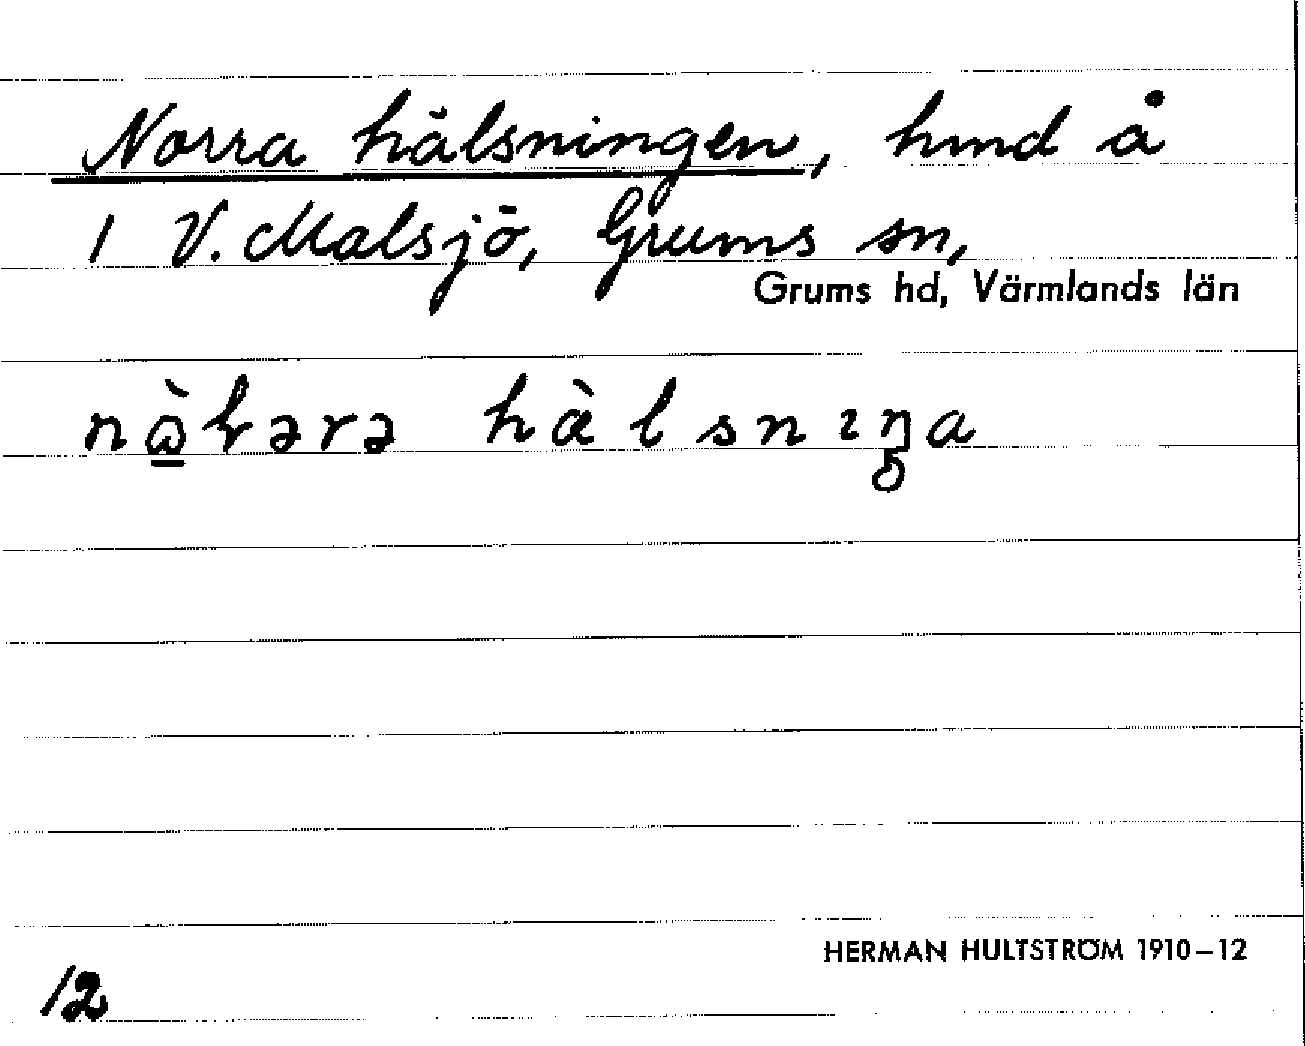 Norra hälsningen, hmd å
1 V. Malsjö, Grums sn,
Grums hd, Värmlands län
hälsnıŋa
HERMAN HULTSTRÖM 1910–12
12